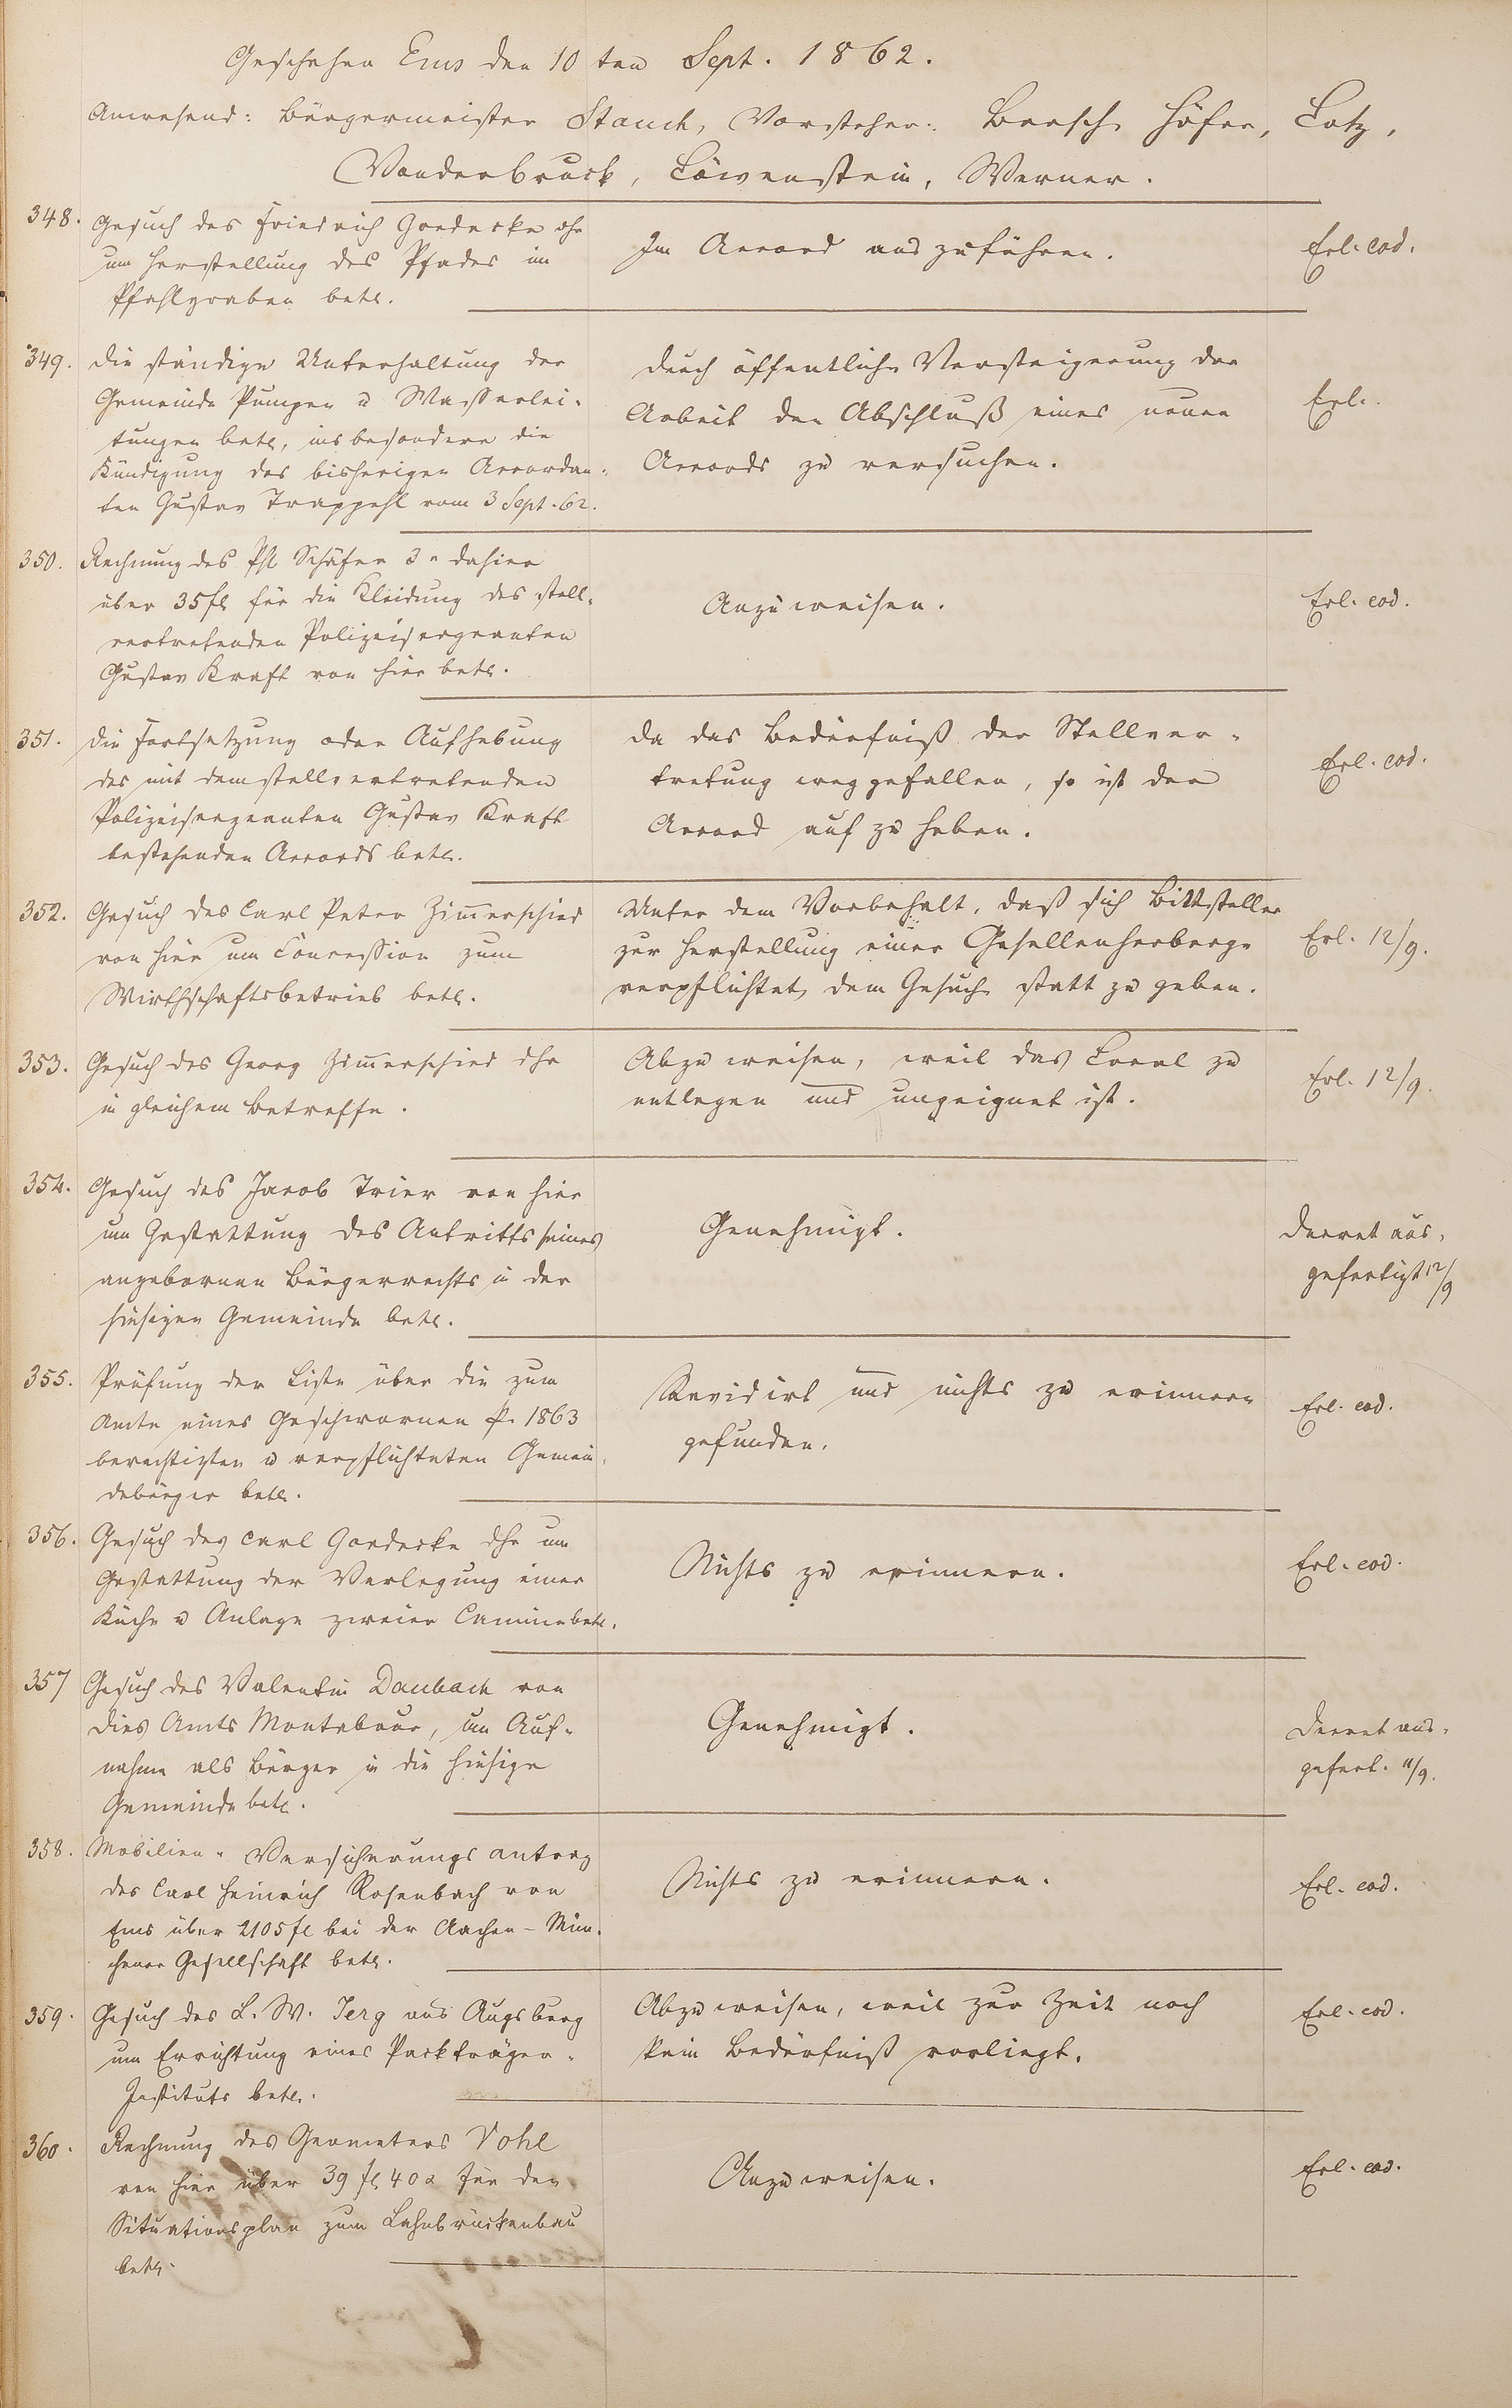 Geschehen Ems den 10ten Sept. 1862.
Anwesend: Bürgermeister Stauch, Vorsteher: Bersch, Höfer, Lotz,
Vonderbruck, Löwenstein, Werner.
348.
Gesuch des Friedrich Goedecke dhr
um Herstellung des Pfades im
Pfahlgraben betr.
Im Accord auszuführen.
Erl. eod.
349.
Die ständige Unterhaltung der
Gemeinde Pumpen u Wasserlei-
tungen betr., insbesondere die
Kündigung des bisherigen Accordan-
ten Gustav Trappehl vom 3 Sept. 62.
Durch öffentliche Versteigerung der
Arbeit den Abschluß eines neuen
Accords zu versuchen.
Erl.
350.
Rechnung des Ph Schäfer 3r dahier
über 35 fl für die Kleidung des stell-
vertretenden Polizeisergeanten
Gustav Kraft von hier betr.
Anzuweisen.
Erl. eod.
351.
Die Fortsetzung oder Aufhebung
des mit dem stellvertretenden
Polizeisergeanten Gustav Kraft
bestehenden Accords betr.
Da das Bedürfniß der Stellver-
tretung weggefallen, so ist der
Accord aufzuheben.
Erl. eod.
352.
Gesuch des Carl Peter Zimerschied
von hier um Concession zum
Wirthschaftsbetrieb betr.
Unter dem Vorbehalt, daß sich Bittsteller
zur Herstellung einer Gesellenherberge
verpflichtet, dem Gesuche statt zu geben.
Erl. 12/9.
353.
Gesuch des Georg Zimerschied dhr
in gleichem Betreffe.
Abzuweisen, weil das Local zu
entlegen und ungeignet ist.
Erl. 12/9.
354.
Gesuch des Jacob Trier von hier
um Gestattung des Antritts seines
angebornen Bürgerrechts in der
hiesigen Gemeinde betr.
Genehmigt.
Decret aus-
gefertigt 12/9
355.
Prüfung der Liste über die zum
Amte eines Geschwornen p. 1863
berechtigten u verpflichteten Gemein-
debürger betr.
Revidirt und nichts zu erinnern
gefunden.
Erl. eod.
356.
Gesuch des Carl Goedecke dhr um
Gestattung der Verlegung einer
Küche u Anlage zweier Camine betr.
Nichts zu erinnern.
Erl. eod.
357
Gesuch des Valentin Daubach von
Dies Amts Montabaur, um Auf-
nahme als Bürger in die hiesige
Gemeinde betr.
Genehmigt.
Decret aus-
gefert. 11/9.
358.
Mobilien-Versicherungsantrag
des Carl Heinrich Rosenbach von
Ems über 2105 fl bei der Aachen-Mün-
chener Gesellschaft betr.
Nichts zu erinnern.
Erl. eod.
359.
Gesuch des L. W. Jerg aus Augsburg
um Errichtung eines Packträger-
Instituts betr.
Abzuweisen, weil zur Zeit noch
kein Bedürfniß vorliegt.
Erl. eod.
360.
Rechnung des Geometers Vohl
von hier über 39 fl 40 x für den
Situationsplan zum Lahnbrückenbau
betr.
Anzuweisen.
Erl. eod.